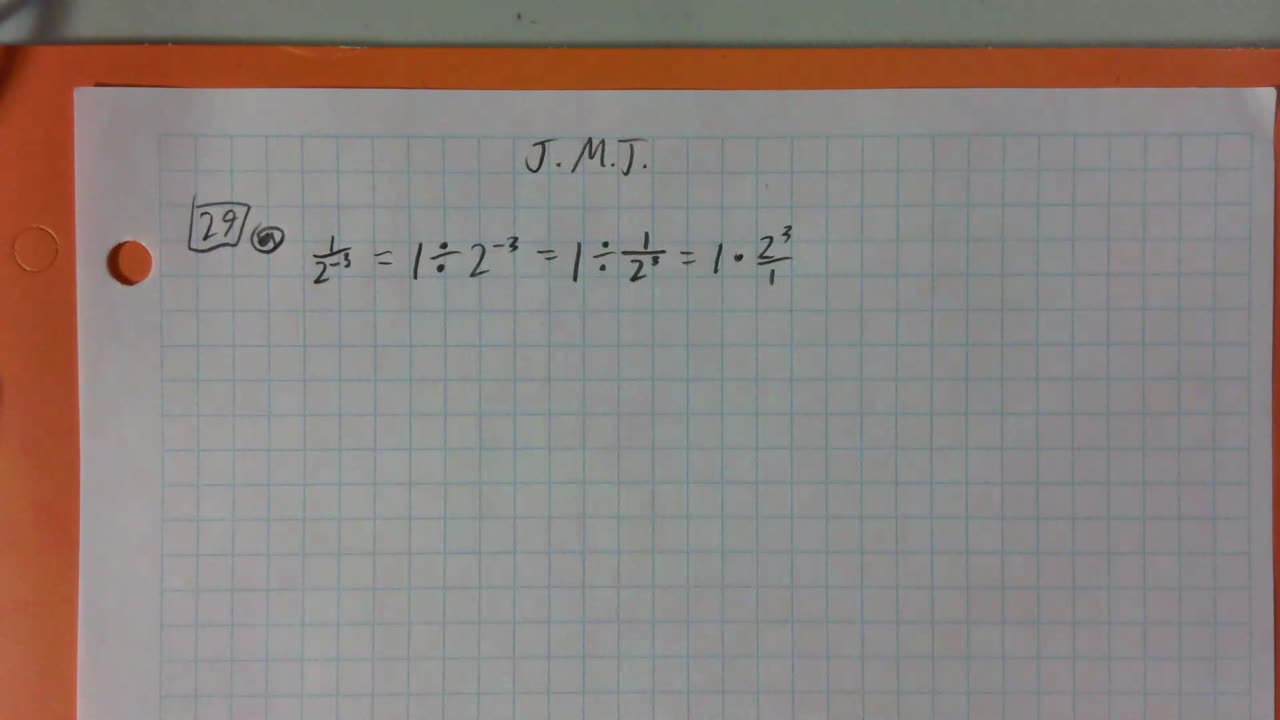 J.M.J.
29 a 1/2⁻³ = 1 ÷ 2⁻³ = 1 ÷ 1/2³ = 1 · 2³/1